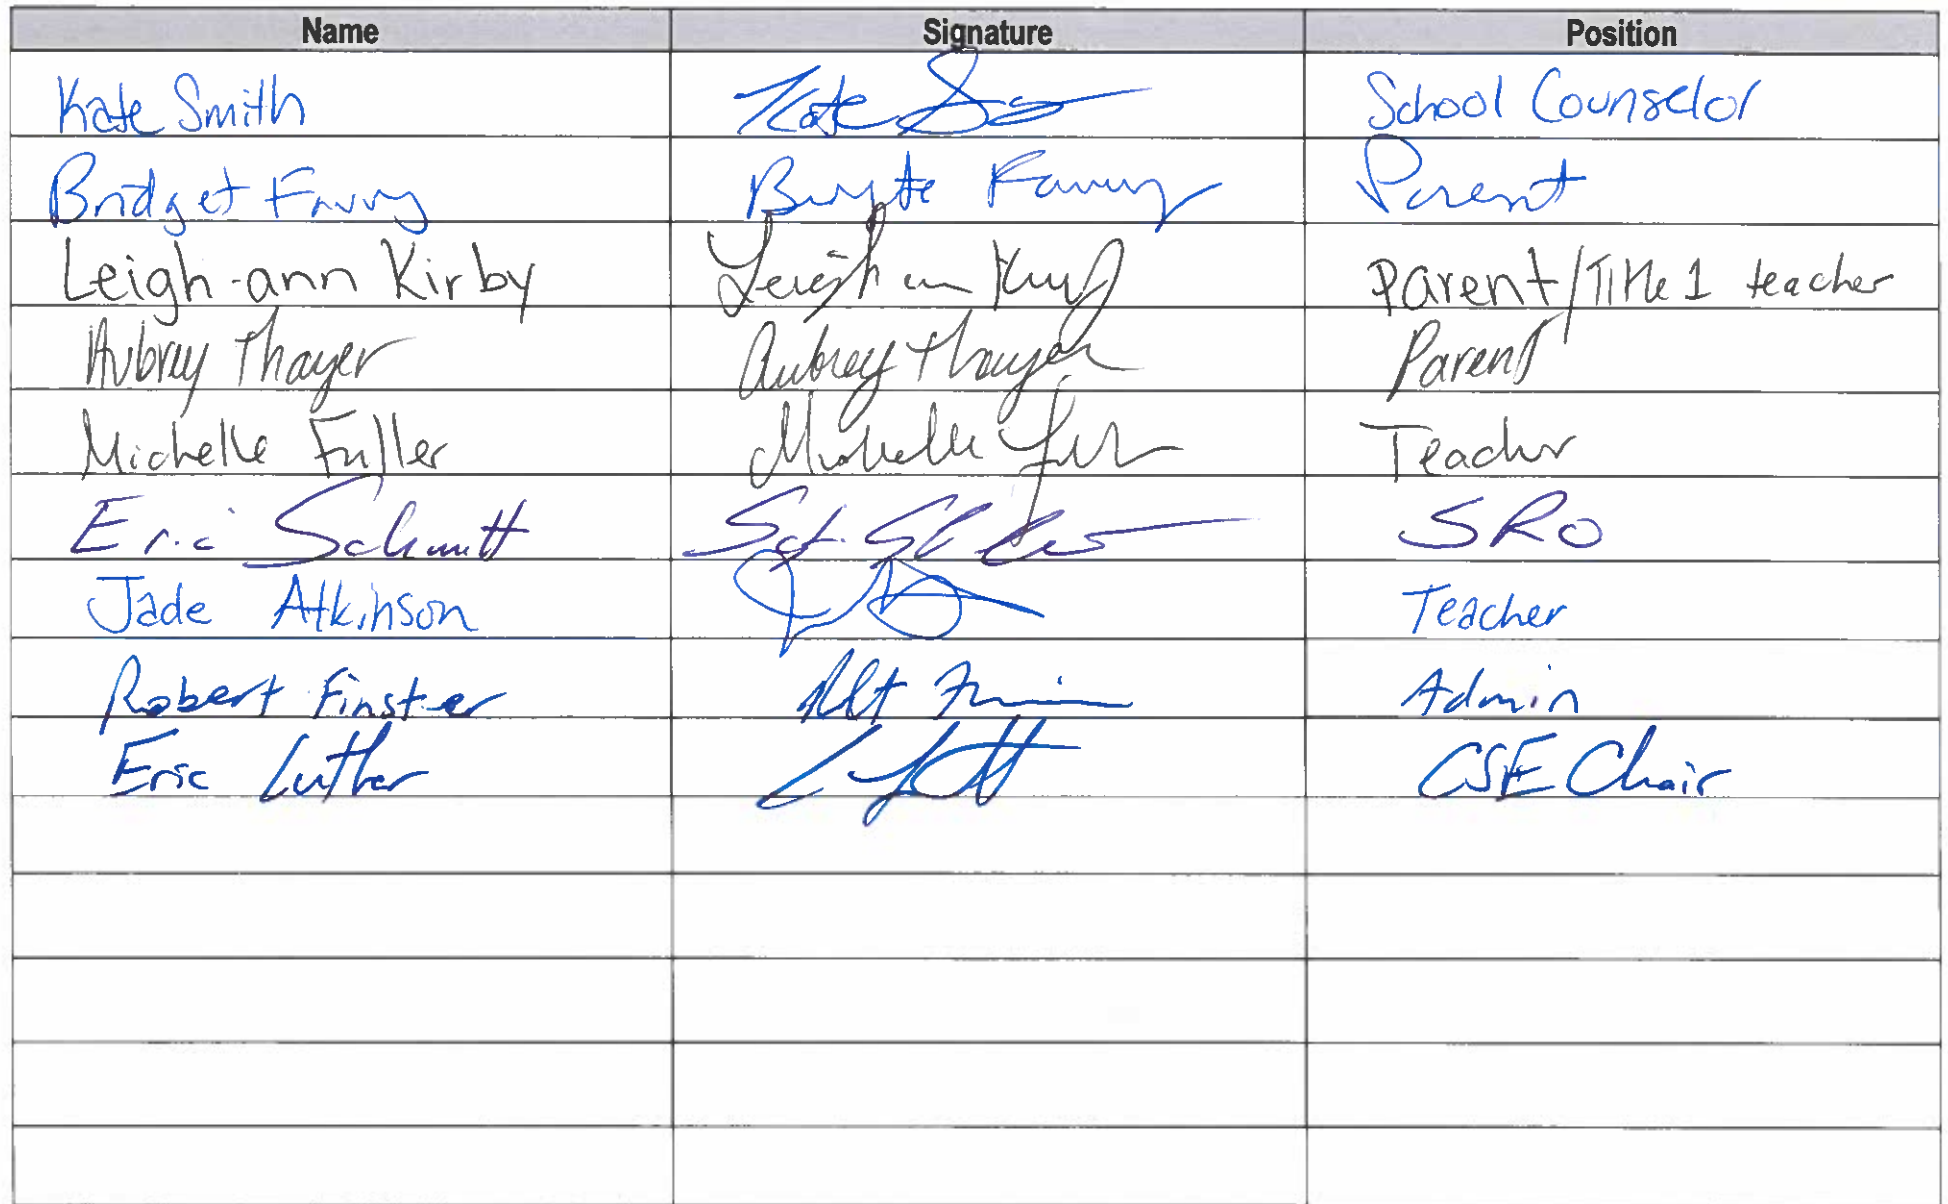 Name Signature Position
Kate Smith Kate School Counselor
Bridget Parent
Leigh-ann Kirby Leigh Parent/Title 1 teacher
Aubrey Thayer Aubrey Thayer Parent
Michelle Fuller Michelle Teacher
Eric Schmitt Sgt. SRO
Jade Atkinson Teacher
Robert Finster Admin
Eric Luther CSE Chair